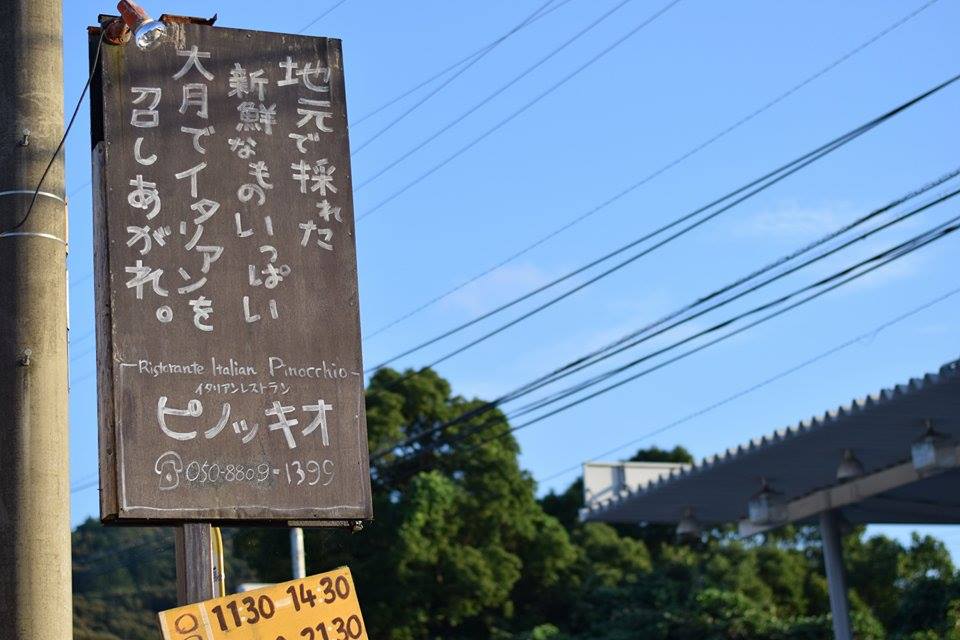 地元で採れた
新鮮なものいっぱい
大月でイタリアンを
召しあがれ。
Ristorante Italian Pinocchio
イタリアンレストラン
ピノッキオ
050-8809-1399
11:30 14:30
21:30